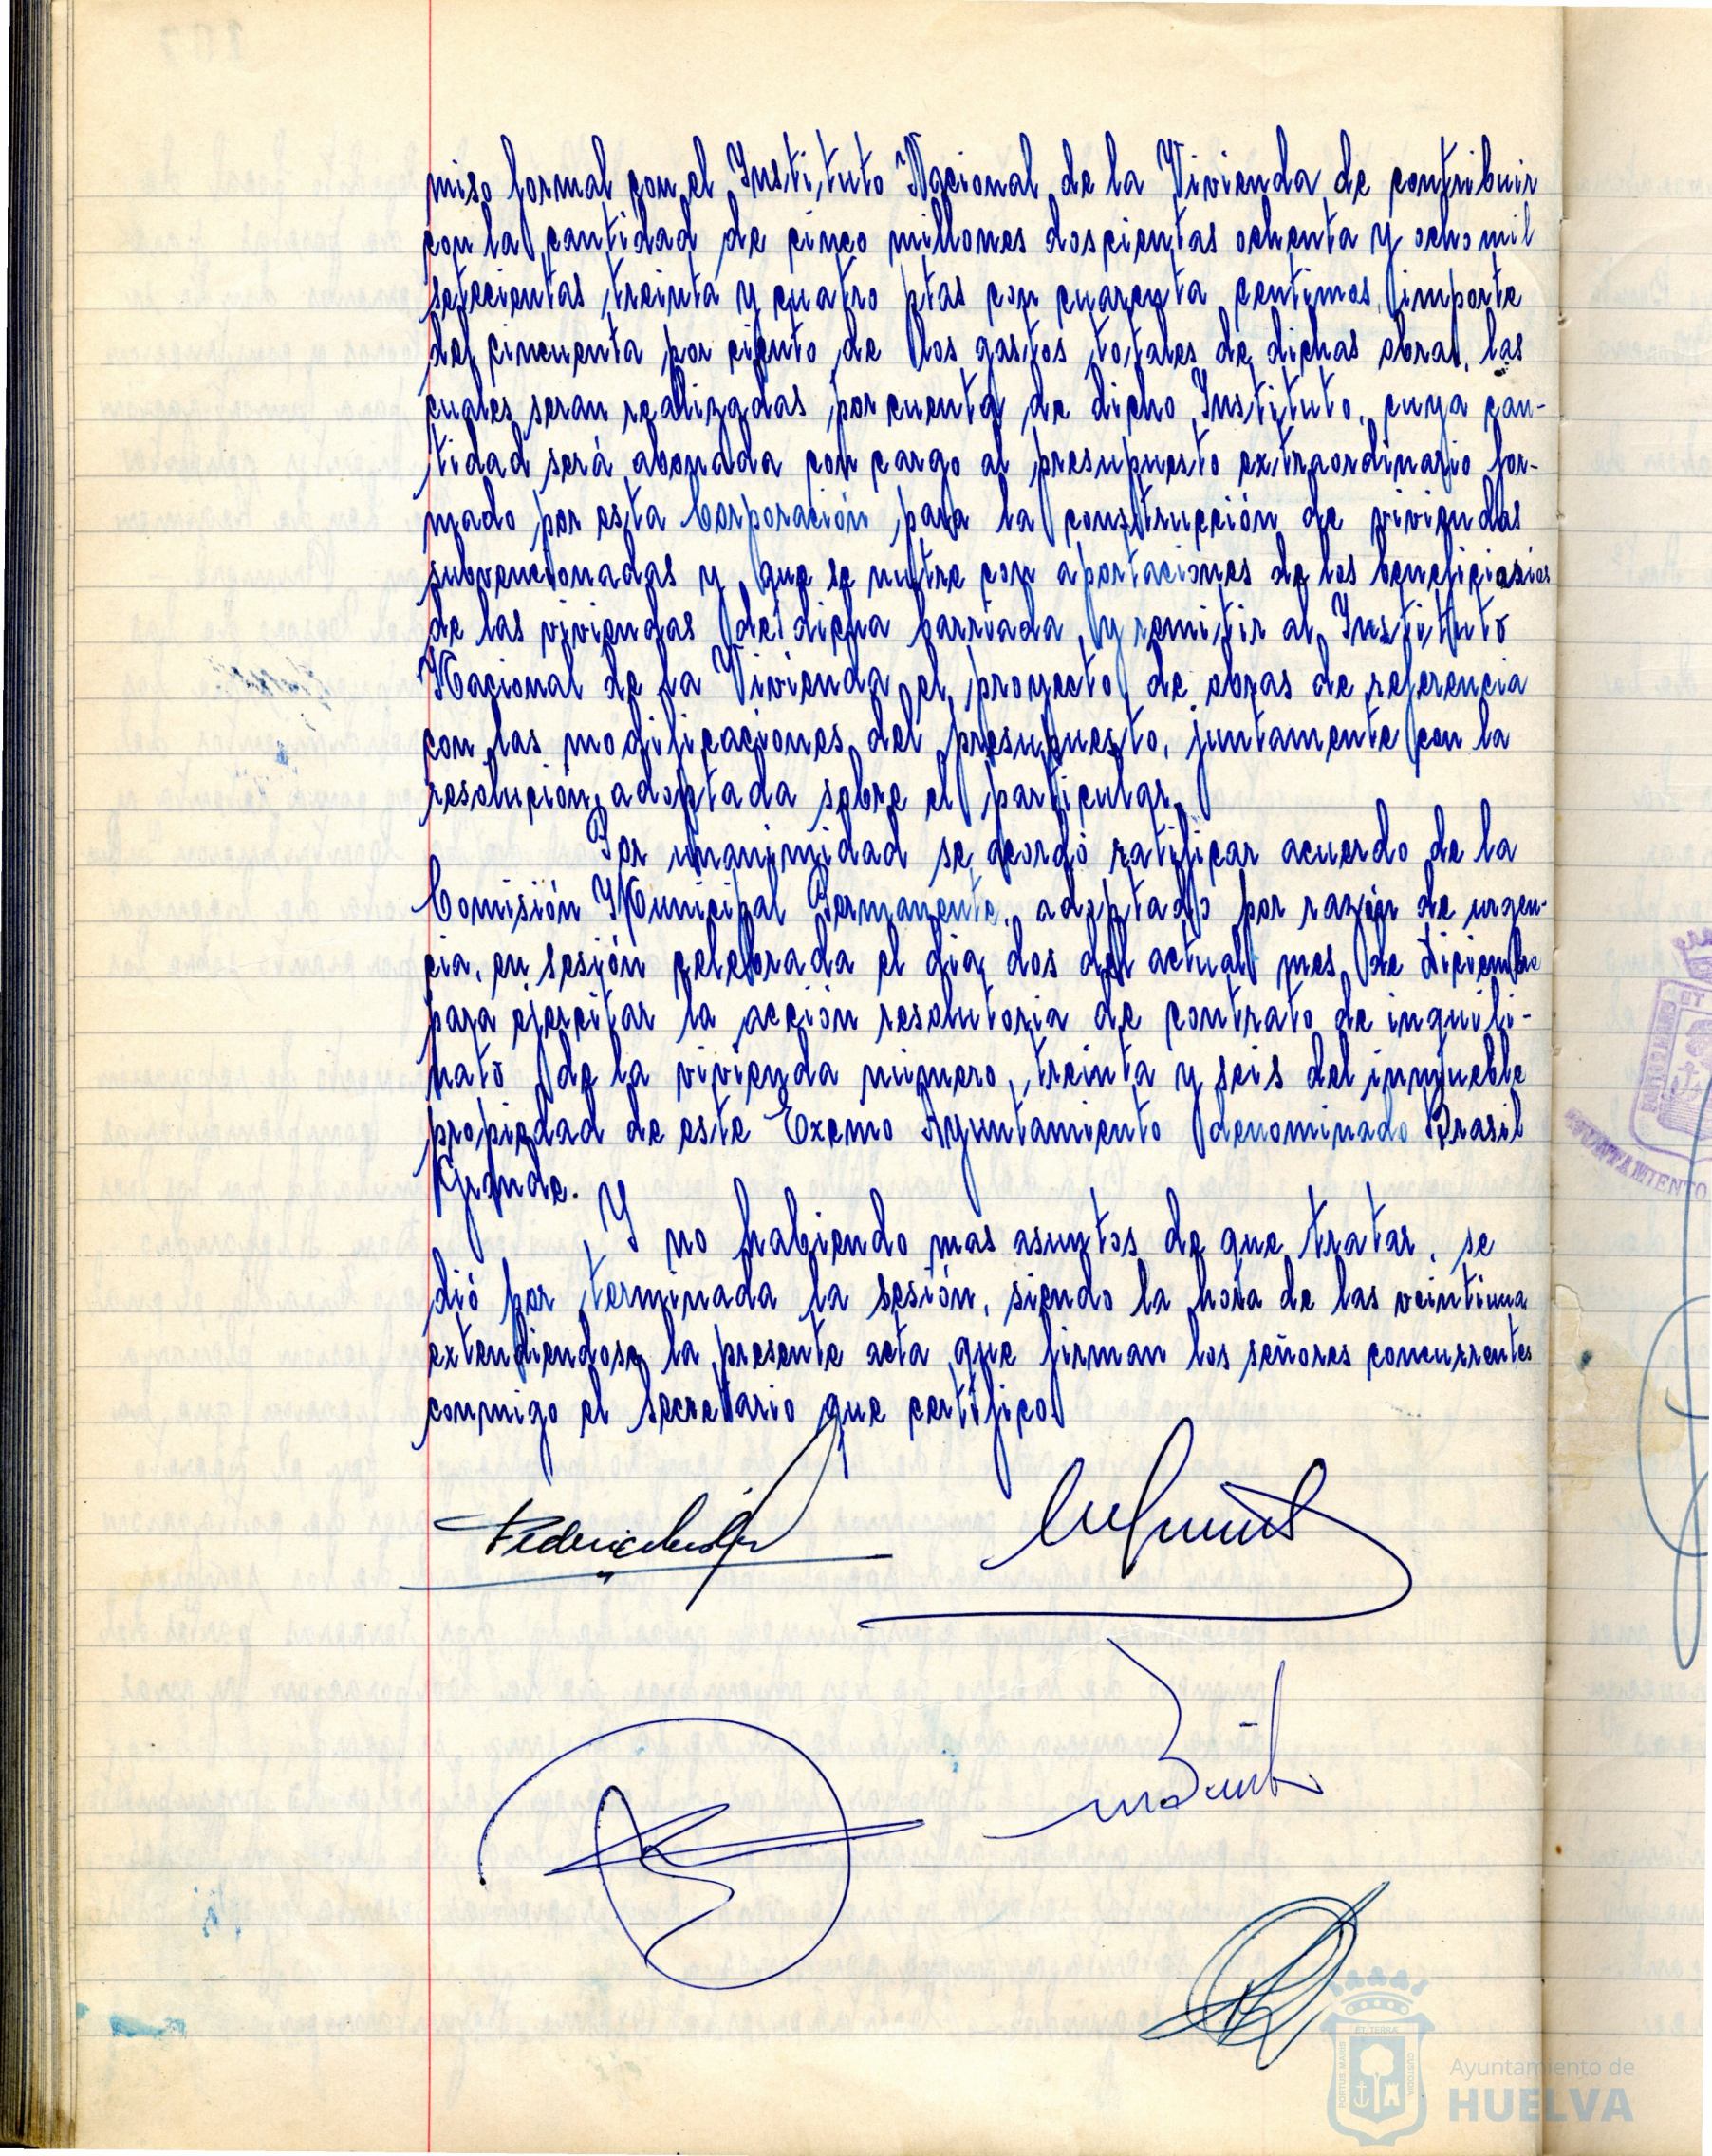 miso formal con el Instituto Nacional de la Vivienda de contribuir
con la cantidad de cinco millones doscientas ochenta y ocho mil
setecientas treinta y cuatro ptas con cuarenta centimos, importe
del cincuenta por ciento de los gastos totales de dichas obras, las
cuales seran realizadas por cuenta de dicho Instituto, cuya can-
tidad será abonada con cargo al presupuesto extraordinario for-
mado por esta Corporación para la construcción de viviendas
subvencionadas y que se nutre con aportaciones de los beneficiarios
de las viviendas de dicha barriada, y remitir al Instituto
Nacional de la Vivienda el proyecto de obras de referencia
con las modificaciones del presupuesto, juntamente con la
resolución adoptada sobre el particular.
Por unanimidad se acordó ratificar acuerdo de la
Comisión Municipal Permanente, adoptado por razón de urgen-
cia, en sesión celebrada el dia dos del actual mes de diciembre
para ejercitar la acción resolutoria de contrato de inquili-
nato de la vivienda número treinta y seis del inmueble
propiedad de este Excmo Ayuntamiento denominado Brasil
Grande.
Y no habiendo mas asuntos de que tratar, se
dió por terminada la sesión, siendo la hora de las veintiuna
extendiendose la presente acta que firman los señores concurrentes
conmigo el secretario que certifico.
AYUNTAMIENTO
Ayuntamiento de
HUELVA